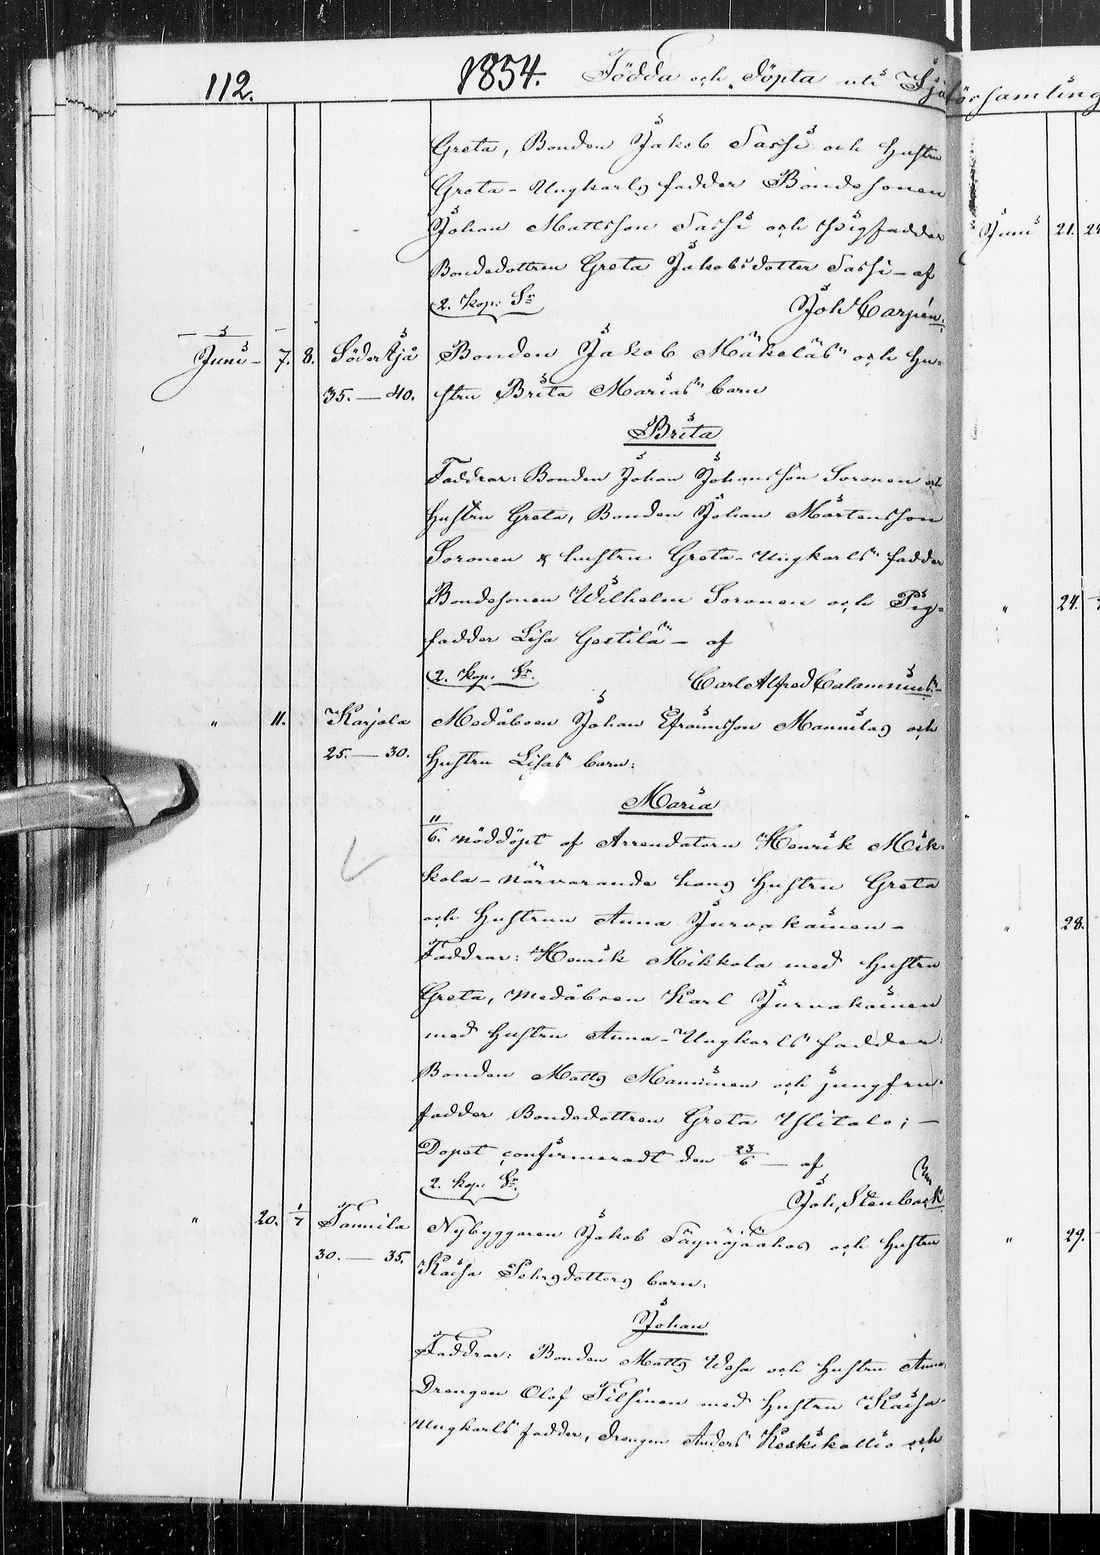 112.
1854. Födda och Döpta uti
församling
Greta, Bonden Jakob Sassi och Hustru
Greta - Ungkarls fadder Bondesonen
Johan Mattsson Sassi och Pigfadder
Bondedottren Greta Jakobsdotter Sassi - af
2. kop: Sr
Joh Carpén.
Juni - 7. 8. Söderkjå Bonden Jakob Mäkeläs och Hu-
35. — 40. stru Brita Marias barn
Brita
Faddrar: Bonden Johan Johansson Soronen och
Hustru Greta, Bonden Johan Mårtensson
Soronen & hustru Greta - Ungkarls fadder
Bondesonen Wilhelm Soronen och Pig-
fadder Lisa Gestilä - af
2. kop. Sr.
Carl Alfred Calamnius.
" 11. Karjola Medåboen Johan Efraimsson Mannilas och
25. — 30. Hustru Lisas barn:
Maria
11/6. nöddöpt af Arrendatorn Henrik Mik-
kola - närvarande hans Hustru Greta
och Hustrun Anna Jurvakainen -
Faddrar: Henrik Mikkola med Hustru
Greta, Medåboen Karl Jurvakainen
med Hustru Anna - Ungkarls fadder:
Bonden Matts Manninen och jungfru-
fadder Bondedottren Greta Ylitalo; —
Dopet confirmeradt den 23/6 — af
2. kop. Sr.
Joh, Stenbäck
" 20. 1/7 Tannila Nybyggaren Jakob Täynäjäakos och Hustru
30. — 35. Kaisa Pehrsdotters barn.
Johan
Faddrar: Bonden Matts Wesa och Hustru Anna,
Drengen Olof Tilsinen med Hustru Kaisa.
Ungkarls fadder, drengen Anders Keskikallio och
Juni 21.
" 24.
" 28.
" 29.